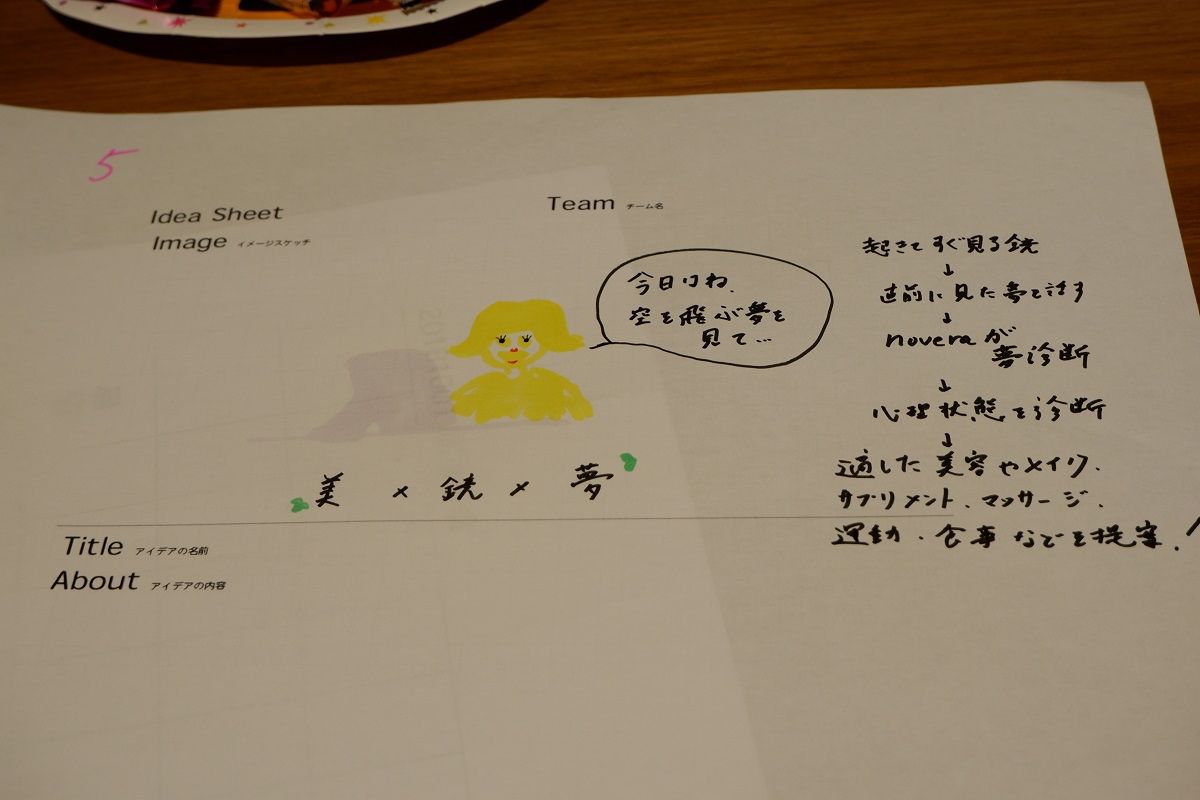 5
Idea Sheet
Image イメージスケッチ
Team チーム名
今日はね、
空を飛ぶ夢を
見て…
美 × 鏡 × 夢
起きてすぐ見る鏡
↓
直前に見た夢を話す
↓
noveraが
夢診断
↓
心理状態を診断
↓
適した美容やメイク、
サプリメント、マッサージ、
運動、食事などを提案!
Title アイデアの名前
About アイデアの内容